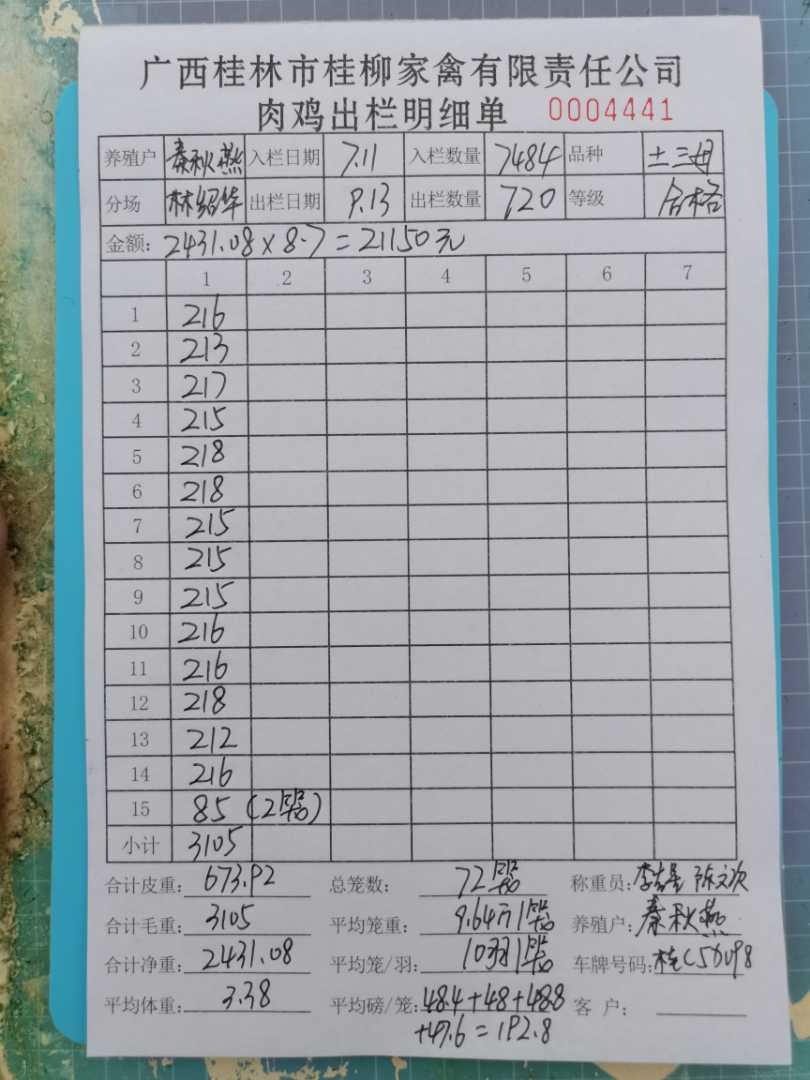 广西桂林市桂柳家禽有限责任公司
肉鸡出栏明细单 0004441
养殖户 秦秋燕 入栏日期 7.11 入栏数量 7484 品种 土三母
分场 林绍华 出栏日期 9.13 出栏数量 720 等级 合格
金额: 2431.08×8.7=21150元
1 2 3 4 5 6 7
1 216
2 213
3 217
4 215
5 218
6 218
7 215
8 215
9 215
10 216
11 216
12 218
13 212
14 216
15 85 (2笼)
小计 3105
合计皮重: 673.92 总笼数: 72笼 称重员:
合计毛重: 3105 平均笼重: 9.64斤/笼 养殖户: 秦秋燕
合计净重: 2431.08 平均笼/羽: 10羽/笼 车牌号码:
平均体重: 3.38 平均磅/笼: 48.4+48+48.8 客户:
+47.6=192.8